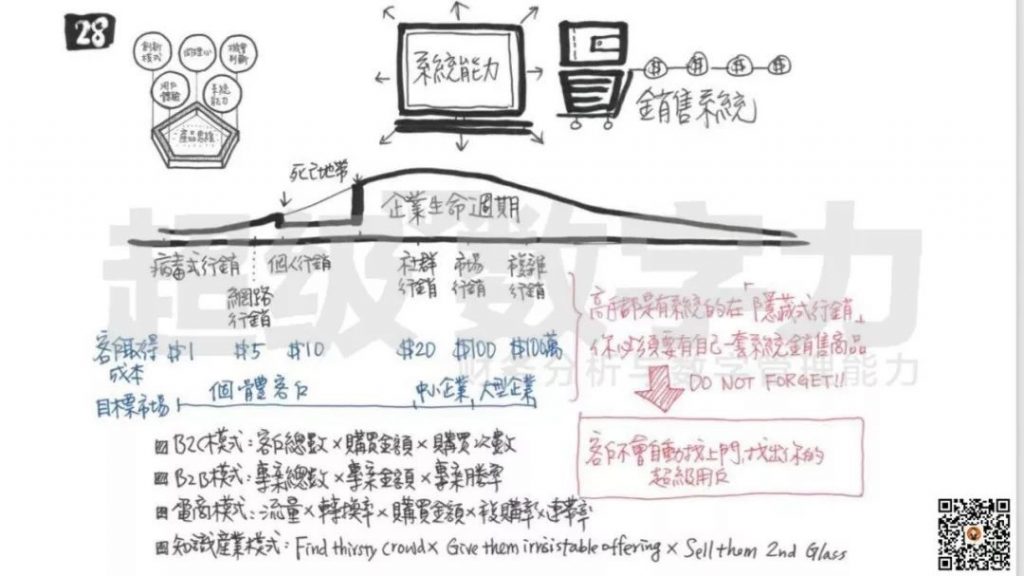 28
創新
模式
同理心
機會
判斷
用戶
體驗
系統
能力
產品思維
系統能力
銷售系統
死亡地帶
企業生命週期
超级数字力
财务分析与数字管理能力
病毒式行銷
個人行銷
社群
行銷
市場
行銷
複雜
行銷
網路
行銷
客戶取得
成本
$1
$5
$10
$20
$100
$100萬
目標市場
個體客戶
中小企業
大型企業
高手都是有系統的在「隱藏式行銷」
你必須要有自己一套系統銷售商品
DO NOT FORGET!!
客戶不會自動找上門,找出你的
超級用戶
B2C模式:客戶總數×購買金額×購買次數
B2B模式:專案總數×專案金額×專案勝率
電商模式:流量×轉換率×購買金額×複購率×連帶率
知識產業模式:Find thirsty crowd× Give them irrisistable offering × Sell them 2nd Glass